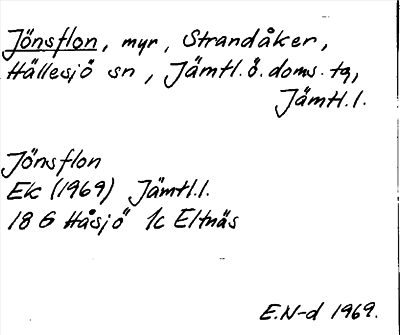 Jönsflon, myr, Strandåker,
Hällesjö sn, Jämtl. ö. doms. tg,
Jämtl. l.
Jönsflon
Ek (1969) Jämtl. l.
18 G Håsjö 1c Eltnäs
E.N-d 1969.